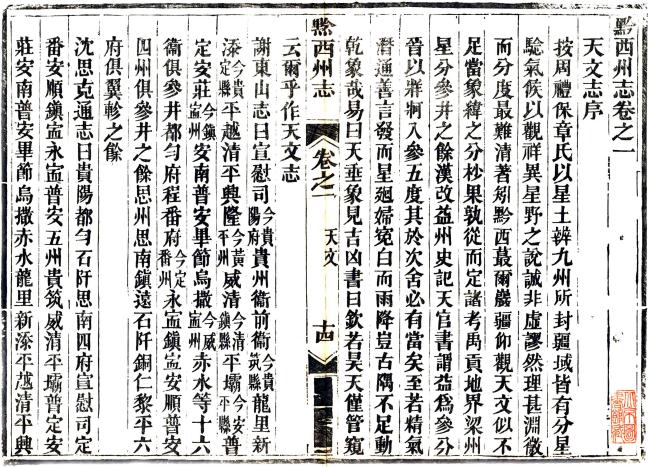 黔西州志卷之一
天文志序
按周禮保章氏以星土辨九州所封疆域皆有分星
驗氣候以觀祥異星野之說誠非虛謬然理甚淵微
而分度最難清著矧黔西蕞爾巖疆仰觀天文似不
足當象緯之分杪果孰從而定諸考禹貢地界梁州
星分參井之餘漢改益州史記天官書謂益爲參分
晉以牂牁入參五度其於次舍必有當矣至若精氣
潛通善言發而星廻婦寃白而雨降豈古隅不足動
乾象哉易曰天垂象見吉凶書曰欽若昊天僅管窺
云爾乎作天文志
黔西州志
卷之一
天文
十四
謝東山志曰宣慰司今貴陽府貴州衛前衛今貴筑縣龍里新
添今貴定縣平越清平興隆今黃平州威清今清鎮縣平壩今安平縣普
定安莊今鎮寧州安南普安畢節烏撒今威寧州赤水等十六
衛俱參井都勻府程番府今定番州永寧鎮寧安順普安
四州俱參井之餘思州思南鎮遠石阡銅仁黎平六
府俱翼軫之餘
沈思克通志曰貴陽都勻石阡思南四府宣慰司定
番安順鎮寧永寧普安五州貴筑威清平壩普定安
莊安南普安畢節烏撒赤水龍里新添平越清平興